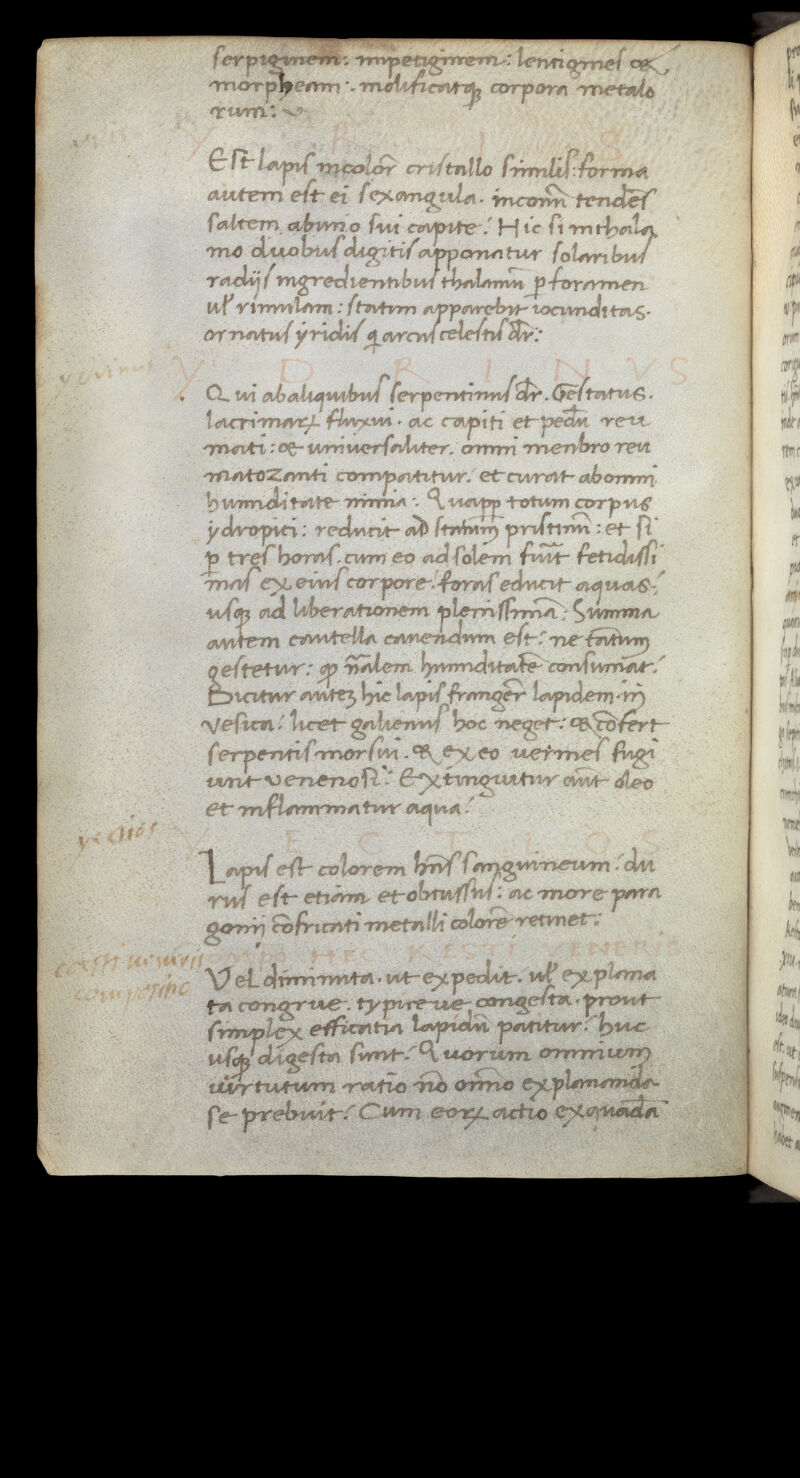 serpiginem: impetiginem: lentigines &
morpheam:. molificatq; corpora metalo
rum:
Y R I S
Est lapis incolor̄ cristallo similis: forma
autem est ei sexangula. in conū tendēs
saltem ab uno sui capite: Hic si in thala
mo duobus digitis apponatur solaribus
radijs ingredientibus thalamū ꝑ foramen
ul̄ rimulam: statim apparebit iocunditas.
ornatus ỳridis qi arcus celestis dr̄:
ydrinus
Y D R I N V S
Qui ab aliquibus serpentinus dr̄. Gēstatus.
lacrimaꝝ fluxui. ac capiti et pedū reu
mati: & universaliter. omni menbro reu
matozanti compatitur: et curat ab omni
humiditate nimia: Quapp̄ totum corpus
ỳdropici: reducit ad statum pristinū: et si
ꝑ tres horas. cum eo ad solem fuīt fetidissi
mas ex eius corpore: foras educit aquas:
usq; ad liberationem plenissimā: Summa
autem cautella cavendum est: ne tātum
gestetur: qp nāalem humiditatē consumat:
Dicitur autez hic lapis frangēr lapidem in
vesica: licet galienus hoc neget: & cōfert
serpentis morsui. & ex eo vermes fugi
unt venenosi: Extinguitur aūt oleo
et inflammatur aqua:
yectios
Y E C T I O S
Lapis est colorem hn̄s sanguineum: du
rus est etiam et obtussus: ac more para
gonij cōfricati metalli colorē retinet:
HEC KESTI VENERIS
Vel diminuta. ut expedit. ul̄ explana
ta congrue. typice ve congesta. prout
simplex efficatia lapidū patitur: huc
usq; digesta sunt: Quorum omnium
virtutum ratio nō omīo explananda
se prebuit: Cum eoꝝ actio ex quadā